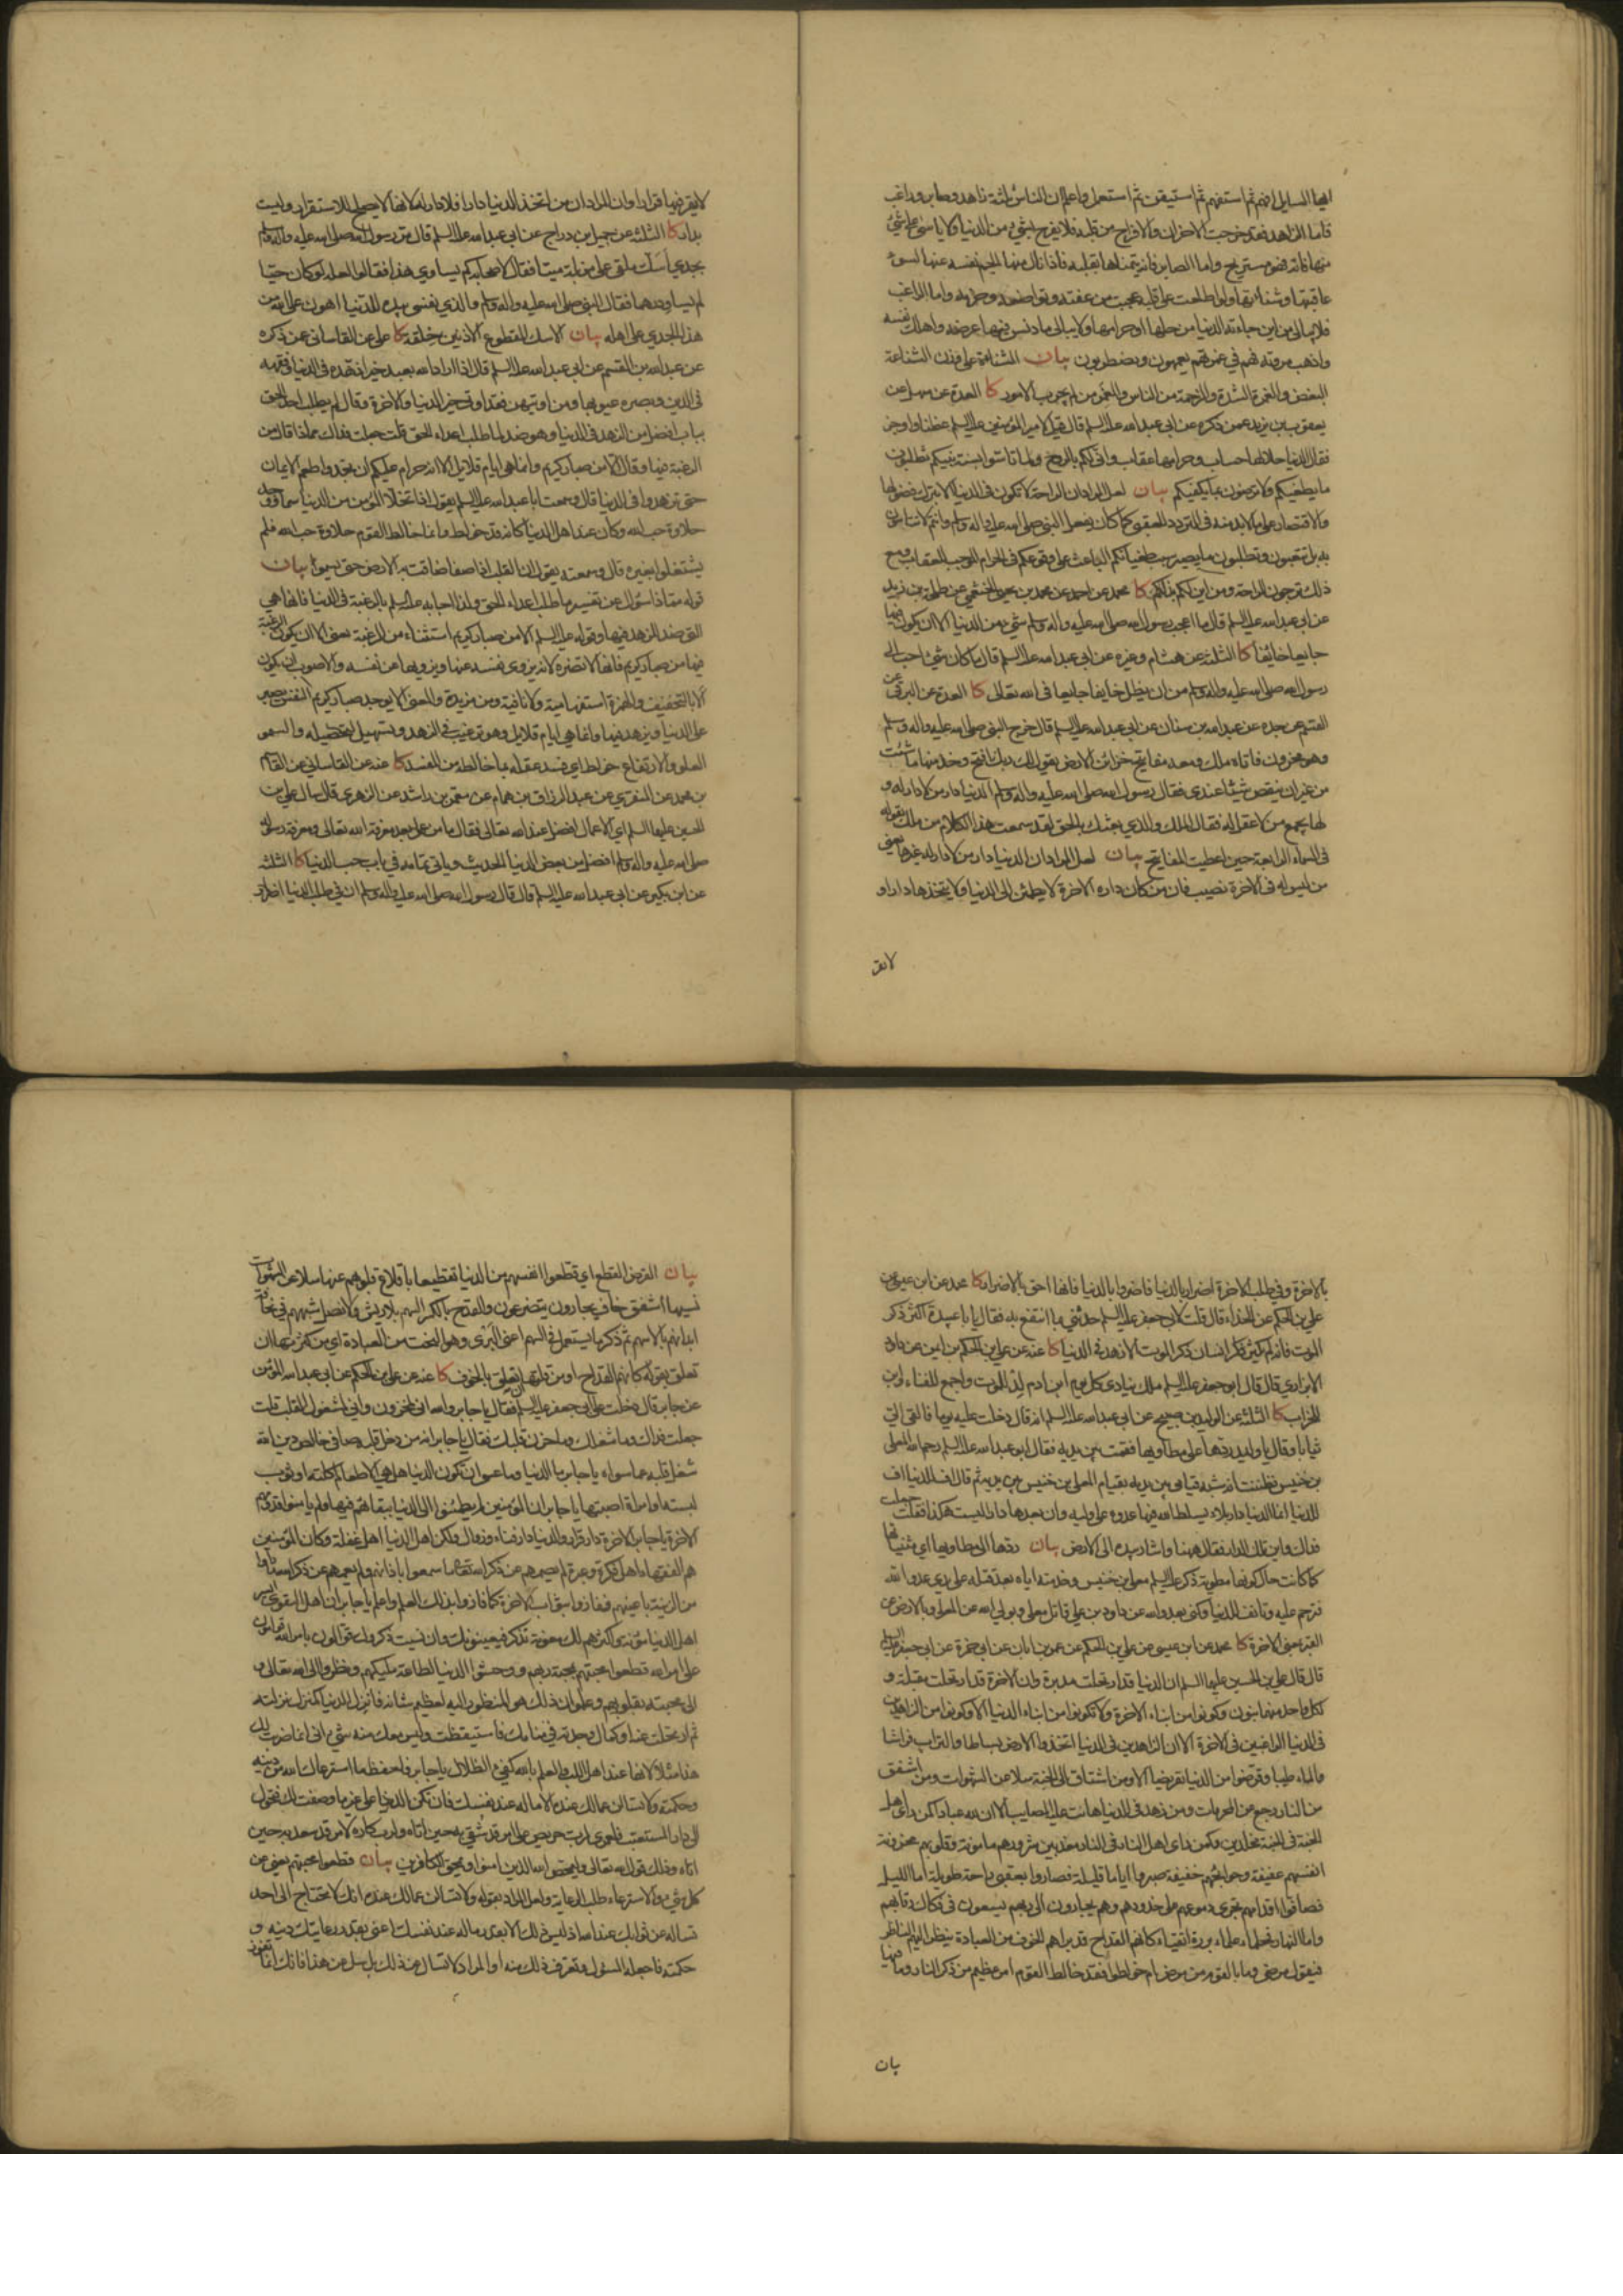 ايها السايل افهم ثم استفهم ثم استيقن ثم استعمل واعلم ان الناس ثلثة زاهد وصابر وراغب
فاما الزاهد فقد خرجت الاحزان والافراح من قلبه فلا يفرح بشئ من الدنيا ولا ياسى على شئ
منها فاته فهو مستريح واما الصابر فانه يتمناها بقلبه فاذا نال منها الجم نفسه عنها لسوء
عاقبتها وشنأتها ولو اطلعت على قلبه عجبت من عفته وتواضعه وحزمه واما الراغب
فلا يبالى من اين جاءته الدنيا من حلها او حرامها ولا يبالى ما دنس فيها عرضه واهلك نفسه
واذهب مروته فهم في غمرتهم يعمهون ويضطربون بيان الشناءة على وزن الشناعة
البغض والغمرة الشدة والزحمة من الناس والغمر من لم يجرب الامور كا العدة عن سهل عن
يعقوب بن يزيد عمن ذكره عن ابي عبدالله عليه السلم قال قيل لامير المؤمنين عليه السلم عظنا واوجز
فقال الدنيا حلالها حساب وحرامها عقاب وانى لكم بالروح ولما تاسوا بسنة نبيكم تطلبون
ما يطغيكم ولا ترضون بما يكفيكم بيان لعل المراد ان الراحة لا تكون في الدنيا الا بترك فضولها
والاقتصار على ما لابد منه في التزود للعقبى كما كان يفعله النبي صلى الله عليه واله وسلم وانتم لا تتاسون
به بل تتعبون وتطلبون ما يصير سبب طغيانكم الباعث على وقوعكم في الحرام الموجب للعقاب ومع
ذلك ترجون الراحة ومن اين لكم بذلكم كا محمد عن احمد عن محمد بن يحيى الخثعمي عن طلحة بن زيد
عن ابي عبدالله عليه السلم قال ما اعجب رسول الله صلى الله عليه واله وسلم شئ من الدنيا الا ان يكون فيها
جايعا خائفا كا الثلثة عن هشام وغيره عن ابي عبدالله عليه السلم قال ما كان شئ احب الى
رسول الله صلى الله عليه واله وسلم من ان يظل خايفا جايعا في الله تعالى كا العدة عن البرقي عن
القسم عن جده عن عبدالله بن سنان عن ابي عبدالله عليه السلم قال خرج النبي صلى الله عليه واله وسلم
وهو محزون فاتاه ملك ومعه مفاتيح خزائن الارض يقول لك ربك افتح وخذ منها ما شئت
من غير ان ينقص شيئا عندي فقال رسول الله صلى الله عليه واله وسلم الدنيا دار من لا دار له و
لها يجمع من لا عقل له فقال الملك والذي بعثك بالحق لقد سمعت هذا الكلام من ملك يقوله
في السماء الرابعة حين اعطيت المفاتيح بيان لعل المراد ان الدنيا دار من لا دار له غيرها يعني
من ليس له في الاخرة نصيب فان من كان داره الاخرة لا يطمئن الى الدنيا ولا يتخذها دارا و
لا يقر
لا يقر فيها قرارا وان المراد ان من اتخذ الدنيا دارا فلا دار له لانها لا يصلح للاستقرار وليست
بدار كا الثلثة عن جميل بن دراج عن ابي عبدالله عليه السلم قال مر رسول الله صلى الله عليه واله وسلم
بجدي اسك ملقى على مزبلة ميتا فقال لاصحابه كم يساوي هذا فقالوا لعله لو كان حيا
لم يساو درهما فقال النبي صلى الله عليه واله وسلم والذي نفسي بيده للدنيا اهون على الله من
هذا الجدي على اهله بيان الاسك المقطوع الاذنين خلقة كا علي عن القاساني عن ذكره
عن عبدالله بن القسم عن ابي عبدالله عليه السلم قال اذا اراد الله بعبد خيرا زهده في الدنيا وفقهه
في الدين وبصره عيوبها ومن اوتيهن فقد اوتي خير الدنيا والاخرة وقال لم يطلب احد الحق
بباب افضل من الزهد في الدنيا وهو ضد لما طلب اعداء الحق قلت جعلت فداك مماذا قال من
الرغبة فيها وقال الا من صبار كريم وانما هي ايام قلايل الا انه حرام عليكم ان تجدوا طعم الايمان
حتى تزهدوا في الدنيا قال وسمعت ابا عبدالله عليه السلم يقول اذا تخلا المؤمن من الدنيا سما ووجد
حلاوة حب الله وكان عند اهل الدنيا كانه قد خولط وانما خالط القوم حلاوة حب الله فلم
يشتغلوا بغيره قال وسمعته يقول ان القلب اذا صفا ضاقت به الارض حتى يسمو بيان
قوله مماذا سؤال عن تفسير ما طلب اعداء الحق ولذا اجابه عليه السلم بالرغبة في الدنيا فانها هي
التي ضد الزهد فيها وقوله عليه السلم الا من صبار كريم استثناء من الرغبة يعني الا ان يكون الرغبة
فيها من صبار كريم فانها لا تضره لانه يزوى نفسه عنها ويزويها عن نفسه والاصوب ان يكون
الا بالتخفيف والهمزة استفهامية ولا نافية ومن مزيدة والمعنى الا يوجد صبار كريم النفس يصبر
على الدنيا ويزهد فيها وانما هي ايام قلايل وهو ترغيب في الزهد وتسهيل لتحصيله والسمو
العلو والارتفاع خولط اي فسد عقله بما خالطه من المفسد كا عنه عن القاساني عن القاسم
بن محمد عن المنقري عن عبد الرزاق بن همام عن معمر بن راشد عن الزهري قال سال علي بن
الحسين عليهما السلم اي الاعمال افضل عند الله تعالى فقال ما من عمل بعد معرفة الله تعالى ومعرفة رسوله
صلى الله عليه واله وسلم افضل من بغض الدنيا الحديث وياتي تمامه في باب حب الدنيا كا الثلثة
عن ابن بكير عن ابي عبدالله عليه السلم قال قال رسول الله صلى الله عليه واله وسلم ان في طلب الدنيا اضرارا
بالاخرة وفي طلب الاخرة اضرارا بالدنيا فاضروا بالدنيا فانها احق بالاضرار كا محمد عن ابن عيسى عن
علي بن الحكم عن الحذاء قال قلت لابي جعفر عليه السلم حدثني بما انتفع به فقال يا با عبيدة اكثر ذكر
الموت فانه لم يكثر ذكر انسان ذكر الموت الا زهد في الدنيا كا عنه عن علي بن الحكم بن ايمن عن داود
الابزاري قال قال ابو جعفر عليه السلم ملك ينادي كل يوم ابن ادم لد للموت واجمع للفناء وابن
للخراب كا الثلثة عن الوليد بن صبيح عن ابي عبدالله عليه السلم انه قال دخلت عليه يوما فالقى الي
ثيابا وقال يا وليد ردها على مطاويها فقمت بين يديه فقال ابو عبدالله عليه السلم رحم الله المعلى
بن خنيس فظننت انه شبه قيامي بين يديه بقيام المعلى بن خنيس بين يديه ثم قال اف للدنيا اف
للدنيا انما الدنيا دار بلاء يسلط الله فيها عدوه على وليه وان بعدها دارا ليست هكذا فقلت جعلت
فداك واين تلك الدار فقال ههنا واشار بيده الى الارض بيان ردها الى مطاويها اي ثنيها
كما كانت حال كونها مطوية ذكر عليه السلم معلى بن خنيس وخدمته اياه بعد قتله على يدي عدو الله
فترحم عليه وتافف للدنيا وكنى بعدو الله عن داود بن علي قاتل معلى وبولي الله عن المعلى وبالارض عن
القبر يعني الاخرة كا محمد عن ابن عيسى عن علي بن الحكم عن عمر بن ابان عن ابي حمزة عن ابي جعفر عليه السلم
قال قال علي بن الحسين عليهما السلم ان الدنيا قد ارتحلت مدبرة وان الاخرة قد ارتحلت مقبلة و
لكل واحد منهما بنون فكونوا من ابناء الاخرة ولا تكونوا من ابناء الدنيا الا وكونوا من الزاهدين
في الدنيا الراغبين في الاخرة الا ان الزاهدين في الدنيا اتخذوا الارض بساطا والتراب فراشا
والماء طيبا وقرضوا من الدنيا تقريضا الا ومن اشتاق الى الجنة سلا عن الشهوات ومن اشفق
من النار رجع عن المحرمات ومن زهد في الدنيا هانت عليه المصايب الا ان لله عبادا كمن راى اهل
الجنة في الجنة مخلدين وكمن راى اهل النار في النار معذبين شرورهم مامونة وقلوبهم محزونة
انفسهم عفيفة وحوايجهم خفيفة صبروا اياما قليلة فصاروا بعقبى راحة طويلة اما الليل
فصافوا اقدامهم تجري دموعهم على خدودهم وهم يجارون الى ربهم يسعون في فكاك رقابهم
واما النهار فحلماء علماء بررة اتقياء كانهم القداح قد براهم الخوف من العبادة ينظر اليهم الناظر
فيقول مرضى وما بالقوم من مرض ام خولطوا فقد خالط القوم امر عظيم من ذكر النار وما فيها
بيان
بيان القرض القطع اي قطعوا انفسهم من الدنيا تقطيعا باقلاع قلوبهم عنها سلا عن الشهوات
نسيها اشفق خاف يجارون يتضرعون والقدح بالكسر السهم بلا ريش ولا نصل شبههم في نحافة
ابدانهم بالاسهم ثم ذكر ما يستعمل في السهم اعني البرى وهو النحت من العبادة اي من كثرتها ان
تعلق بقوله كانهم القداح او من قلتها ان تعلق بالخوف كا عنه عن علي بن الحكم عن ابي عبدالله المؤمن
عن جابر قال دخلت على ابي جعفر عليه السلم فقال يا جابر والله اني لمحزون واني لمشغول القلب قلت
جعلت فداك وما شغلك وما حزن قلبك فقال يا جابر انه من دخل قلبه صافي خالص دين الله
شغل قلبه عما سواه يا جابر ما الدنيا وما عسى ان تكون الدنيا هل هي الا طعام اكلته او ثوب
لبسته او امراة اصبتها يا جابر ان المؤمنين لم يطمئنوا الى الدنيا ببقائهم فيها ولم يامنوا قدومهم
الاخرة يا جابر الاخرة دار قرار والدنيا دار فناء وزوال ولكن اهل الدنيا اهل غفلة وكان المؤمنين
هم الفقهاء اهل فكرة وعبرة لم يصمهم عن ذكر الله تعالى ما سمعوا باذانهم ولم يعمهم عن ذكر الله ما راوا
من الزينة باعينهم ففازوا بثواب الاخرة كما فازوا بذلك العلم واعلم يا جابر ان اهل التقوى ايسر
اهل الدنيا مؤنة واكثرهم لك معونة تذكر فيعينونك وان نسيت ذكروك قوالون بامر الله قوامون
على امر الله قطعوا محبتهم بمحبة ربهم ووحشوا الدنيا لطاعة مليكهم ونظروا الى الله تعالى و
الى محبته بقلوبهم وعلموا ان ذلك هو المنظور اليه لعظيم شانه فانزل الدنيا كمنزل نزلته
ثم ارتحلت عنه او كمال وجدته في منامك فاستيقظت وليس معك منه شئ اني انما ضربت لك
هذا مثلا لانها عند اهل اللب والعلم بالله كفيئ الظلال يا جابر فاحفظ ما استرعاك الله من دينه
وحكمته ولا تسالن عما لك عنده الا ما له عند نفسك فان تكن الدنيا على غير ما وصفت لك فتحول
الى دار المستعتب فلعمري لرب حريص على امر قد شقي به حين اتاه ولرب كاره لامر قد سعد به حين
اتاه وذلك قول الله تعالى وليمحص الله الذين امنوا ويمحق الكافرين بيان قطعوا محبتهم يعني عن
كل شئ والاسترعاء طلب الرعاية ولعل المراد بقوله ولا تسالن عما لك عنده انك لا تحتاج الى احد
تساله عن ثوابك عند الله اذ ليس ذلك الا بقدر ما له عند نفسك اعني بقدر رعايتك دينه و
حكمته فاجعله المسؤل وتعرف ذلك منه او المراد لا تسال عن ذلك بل سل عن هذا فانك انما تفوز